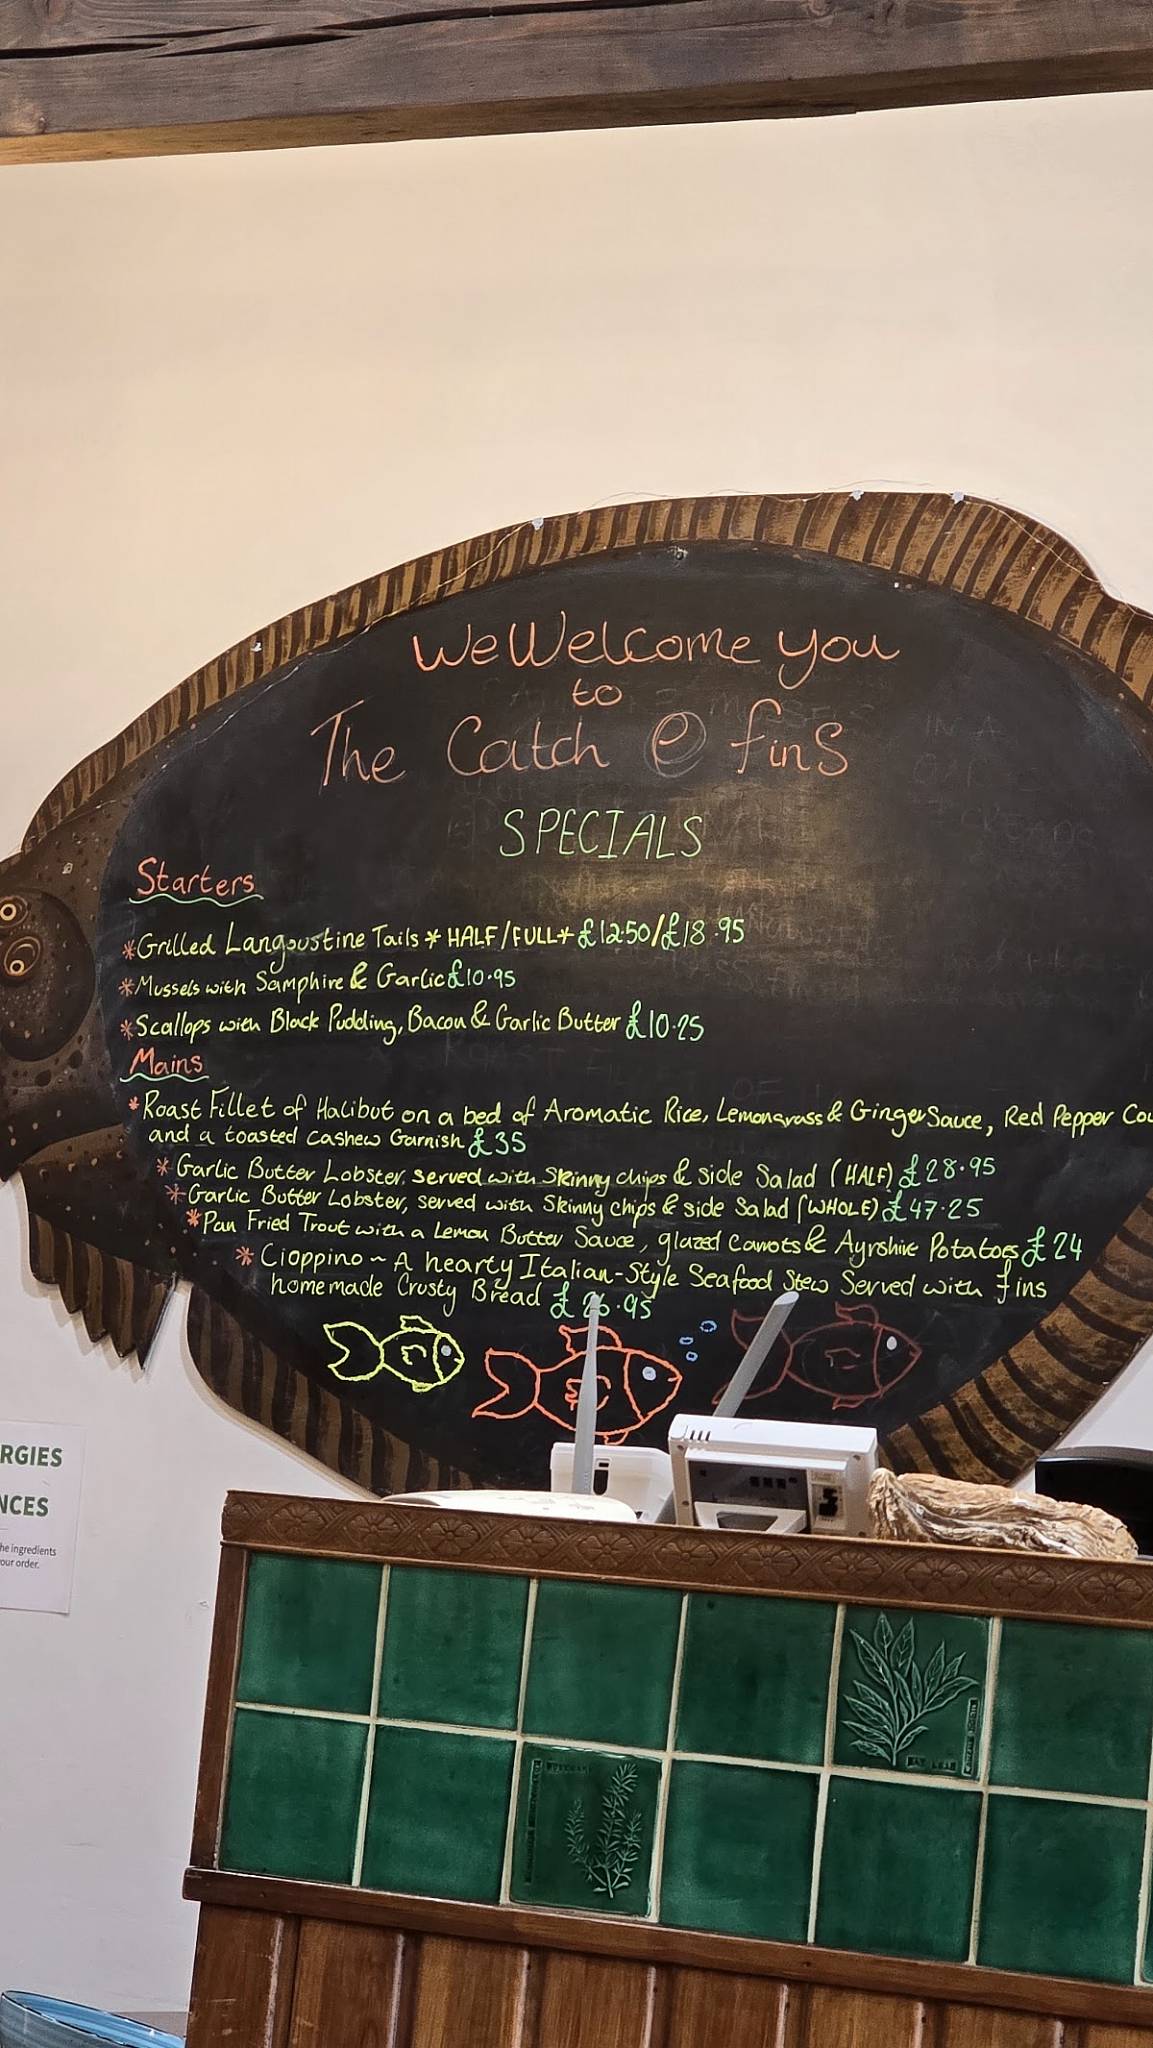 We Welcome you
to
The Catch @ fins
SPECIALS
Starters
*Grilled Langoustine Tails * HALF/FULL* £12.50/£18.95
*Mussels with Samphire & Garlic £10.95
*Scallops with Black Pudding, Bacon & Garlic Butter £10.25
Mains
*Roast Fillet of Halibut on a bed of Aromatic Rice, Lemongrass & Ginger Sauce, Red Pepper Cou
and a toasted cashew Garnish £35
*Garlic Butter Lobster, served with Skinny chips & side Salad (HALF) £28.95
*Garlic Butter Lobster, served with Skinny chips & side Salad (WHOLE) £47.25
*Pan Fried Trout with a Lemon Butter Sauce, glazed carrots & Ayrshire Potatoes £24
*Cioppino ~ A hearty Italian-Style Seafood Stew Served with fins
homemade Crusty Bread £26.95
RGIES
NCES
he ingredients
our order.
BAY LEAF
ROSEMARY